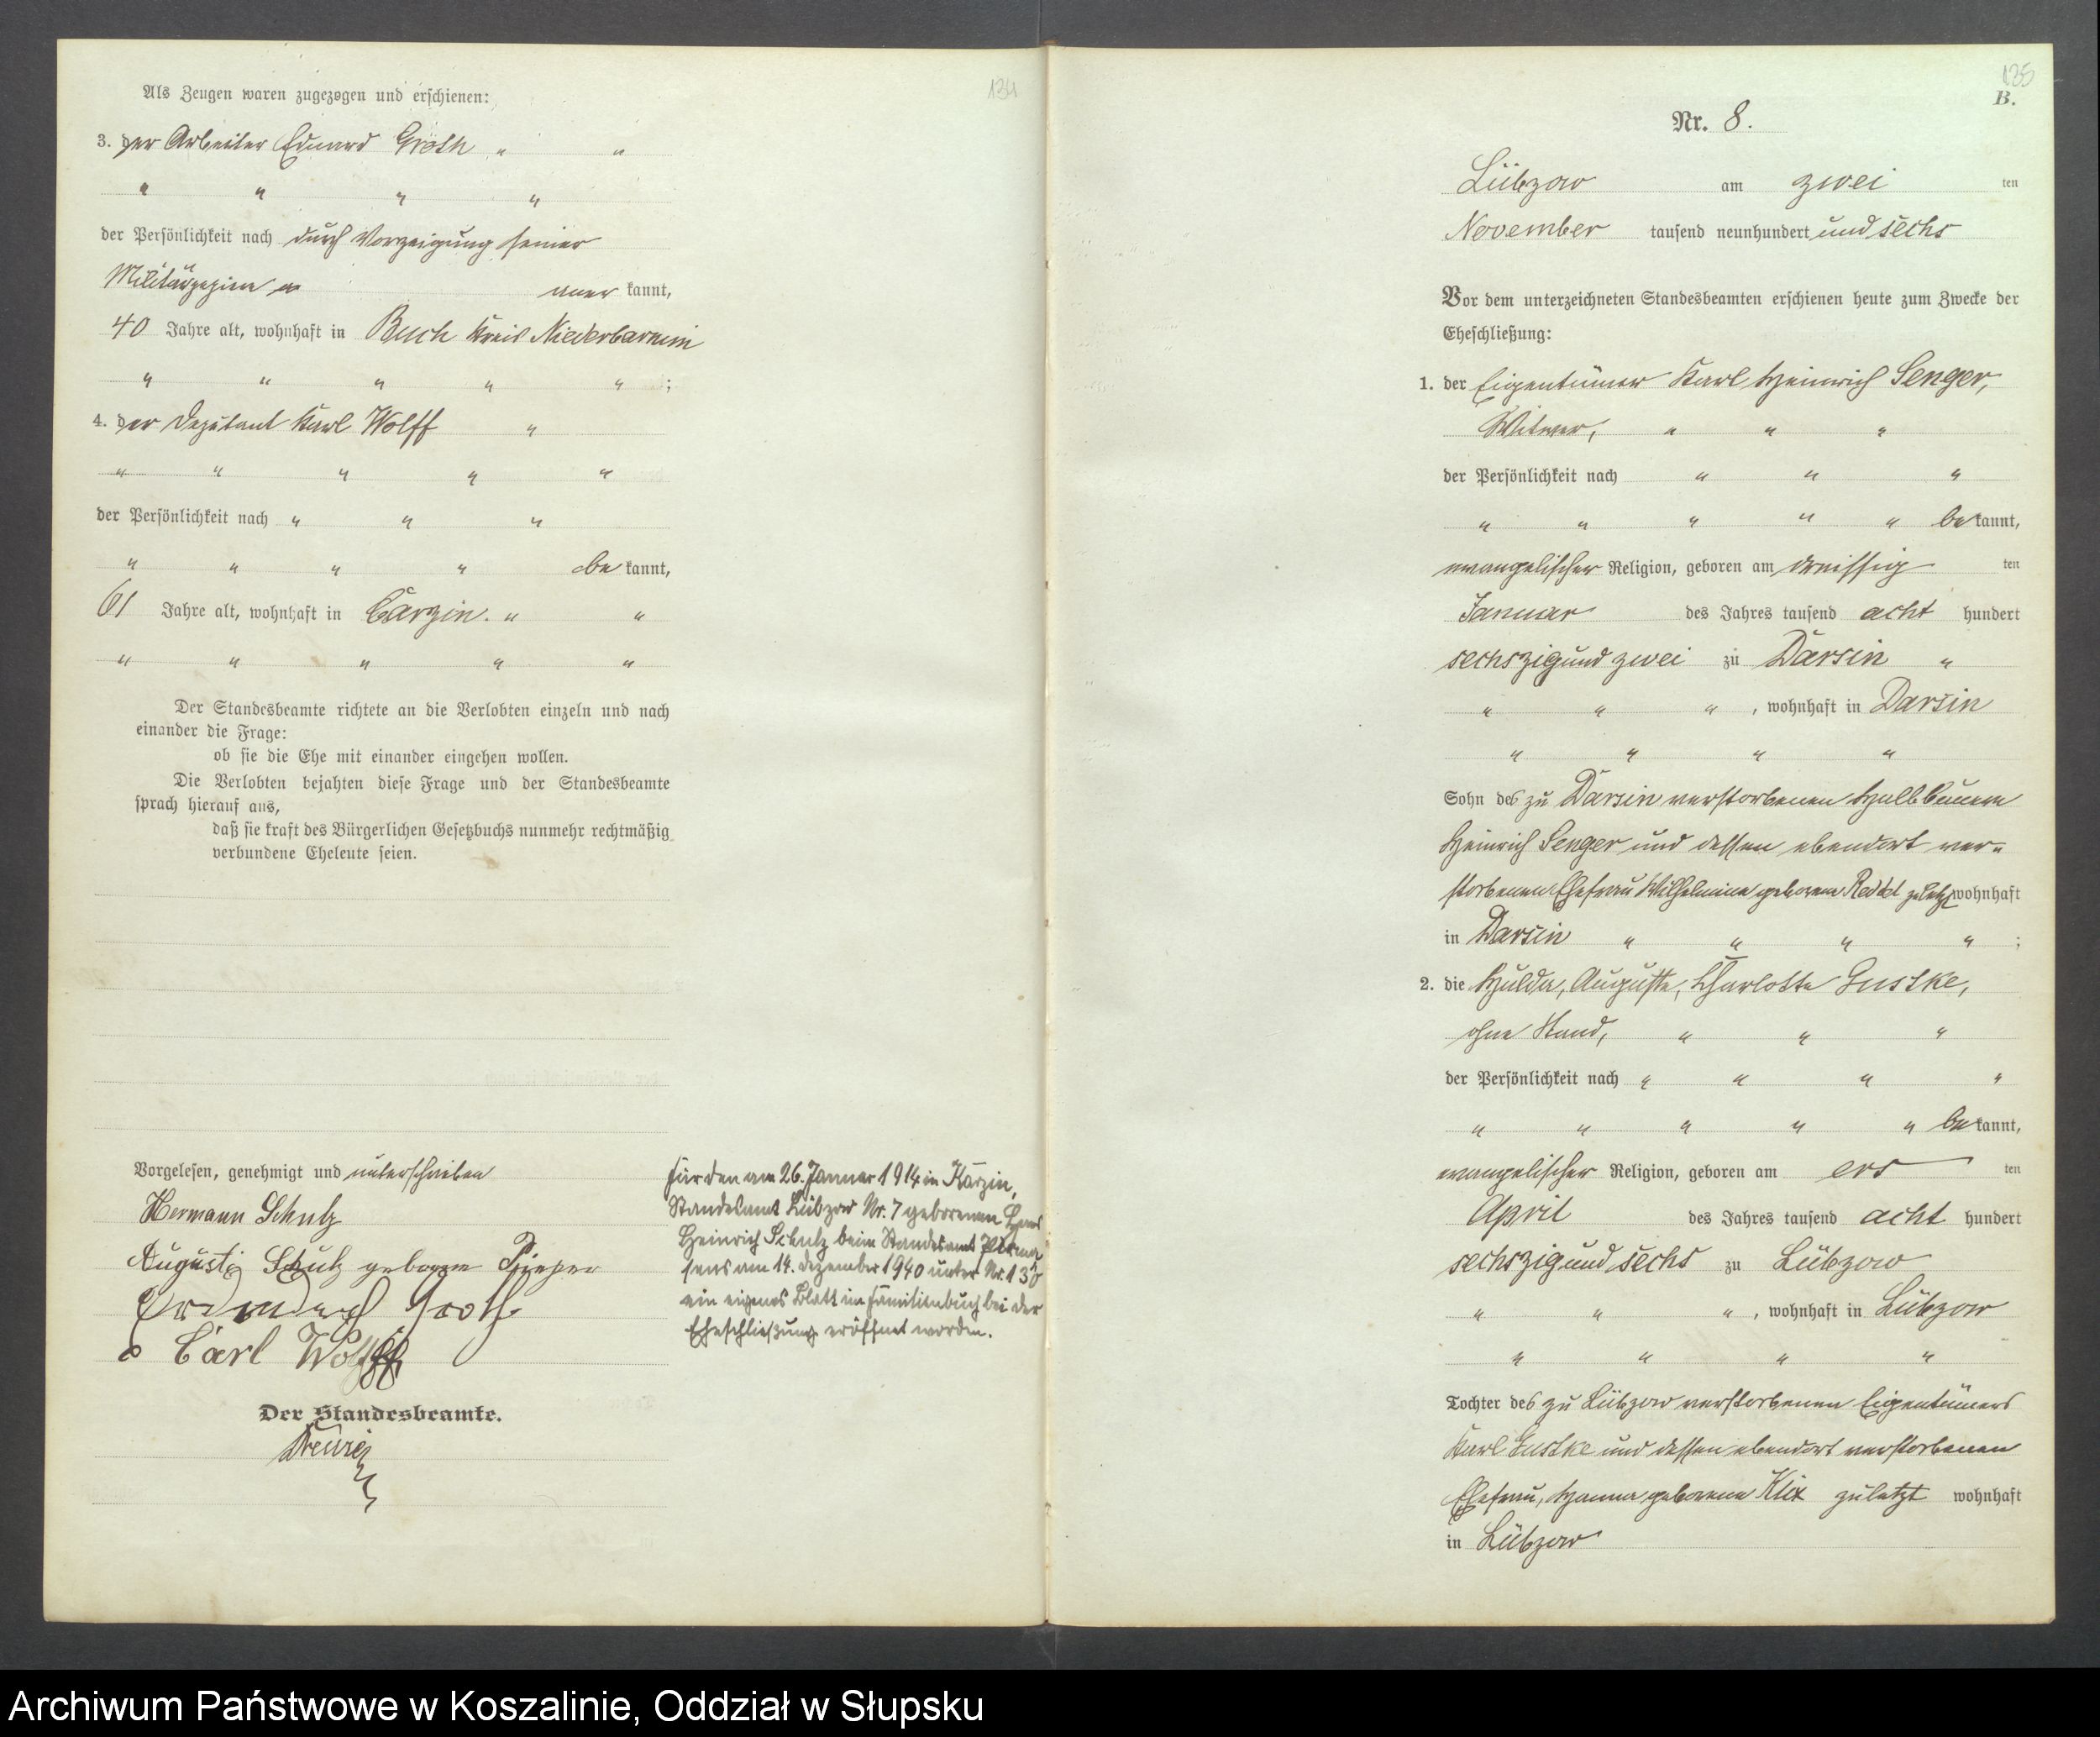 134
Als Zeugen waren zugezogen und erschienen:
3. der Arbeiter Eduard Groth " "
" " " "
der Persönlichkeit nach durch Vorzeigung seiner
kannt,
40 Jahre alt, wohnhaft in Buch Kreis Niederbarnim
" " " " " ;
4. der Deputant Karl Wolff "
" " " " "
der Persönlichkeit nach " " "
" " " " be kannt,
61 Jahre alt, wohnhaft in Carzin. " "
" " " " "
Der Standesbeamte richtete an die Verlobten einzeln und nach
einander die Frage:
ob sie die Ehe mit einander eingehen wollen.
Die Verlobten bejahten diese Frage und der Standesbeamte
sprach hierauf aus,
daß sie kraft des Bürgerlichen Gesetzbuchs nunmehr rechtmäßig
verbundene Eheleute seien.
Vorgelesen, genehmigt und unterschrieben
Hermann Schulz
Auguste Schulz geborene
Groth
Carl Wolff
Der Standesbeamte.
Für den am 26. Januar 1914 in Karzin,
Standesamt Lübzow Nr. 7 geborenen Hans
Heinrich Schulz beim Standesamt Pirma
sens am 14. Dezember 1940 unter Nr. 130
ein eigenes Blatt im Familienbuch bei der
Eheschließung eröffnet worden.
135
B.
Nr. 8.
Lübzow am zwei ten
November tausend neunhundert und sechs
Vor dem unterzeichneten Standesbeamten erschienen heute zum Zwecke der
Eheschließung:
1. der Eigentümer Karl Heinrich Senger,
Witwer, " " "
der Persönlichkeit nach " " "
" " " " " be kannt,
evangelischer Religion, geboren am dreissig ten
Januar des Jahres tausend acht hundert
sechszig und zwei zu Darsin "
" " " , wohnhaft in Darsin
" " " "
Sohn des zu Darsin verstorbenen Halbbauern
Heinrich Senger und dessen ebendort ver-
storbenen Ehefrau Wilhelmine geborene zuletzt wohnhaft
in Darsin " " " " ;
2. die Hulda, Auguste, Charlotte Gustke,
ohne Stand, " " "
der Persönlichkeit nach " " " "
" " " " " be kannt,
evangelischer Religion, geboren am ers ten
April des Jahres tausend acht hundert
sechszig und sechs zu Lübzow
" " " , wohnhaft in Lübzow
" " " "
Tochter des zu Lübzow verstorbenen Eigentümers
Karl Gustke und dessen ebendort verstorbenen
Ehefrau, Hanna geborene Klix zuletzt wohnhaft
in Lübzow
Archiwum Państwowe w Koszalinie, Oddział w Słupsku